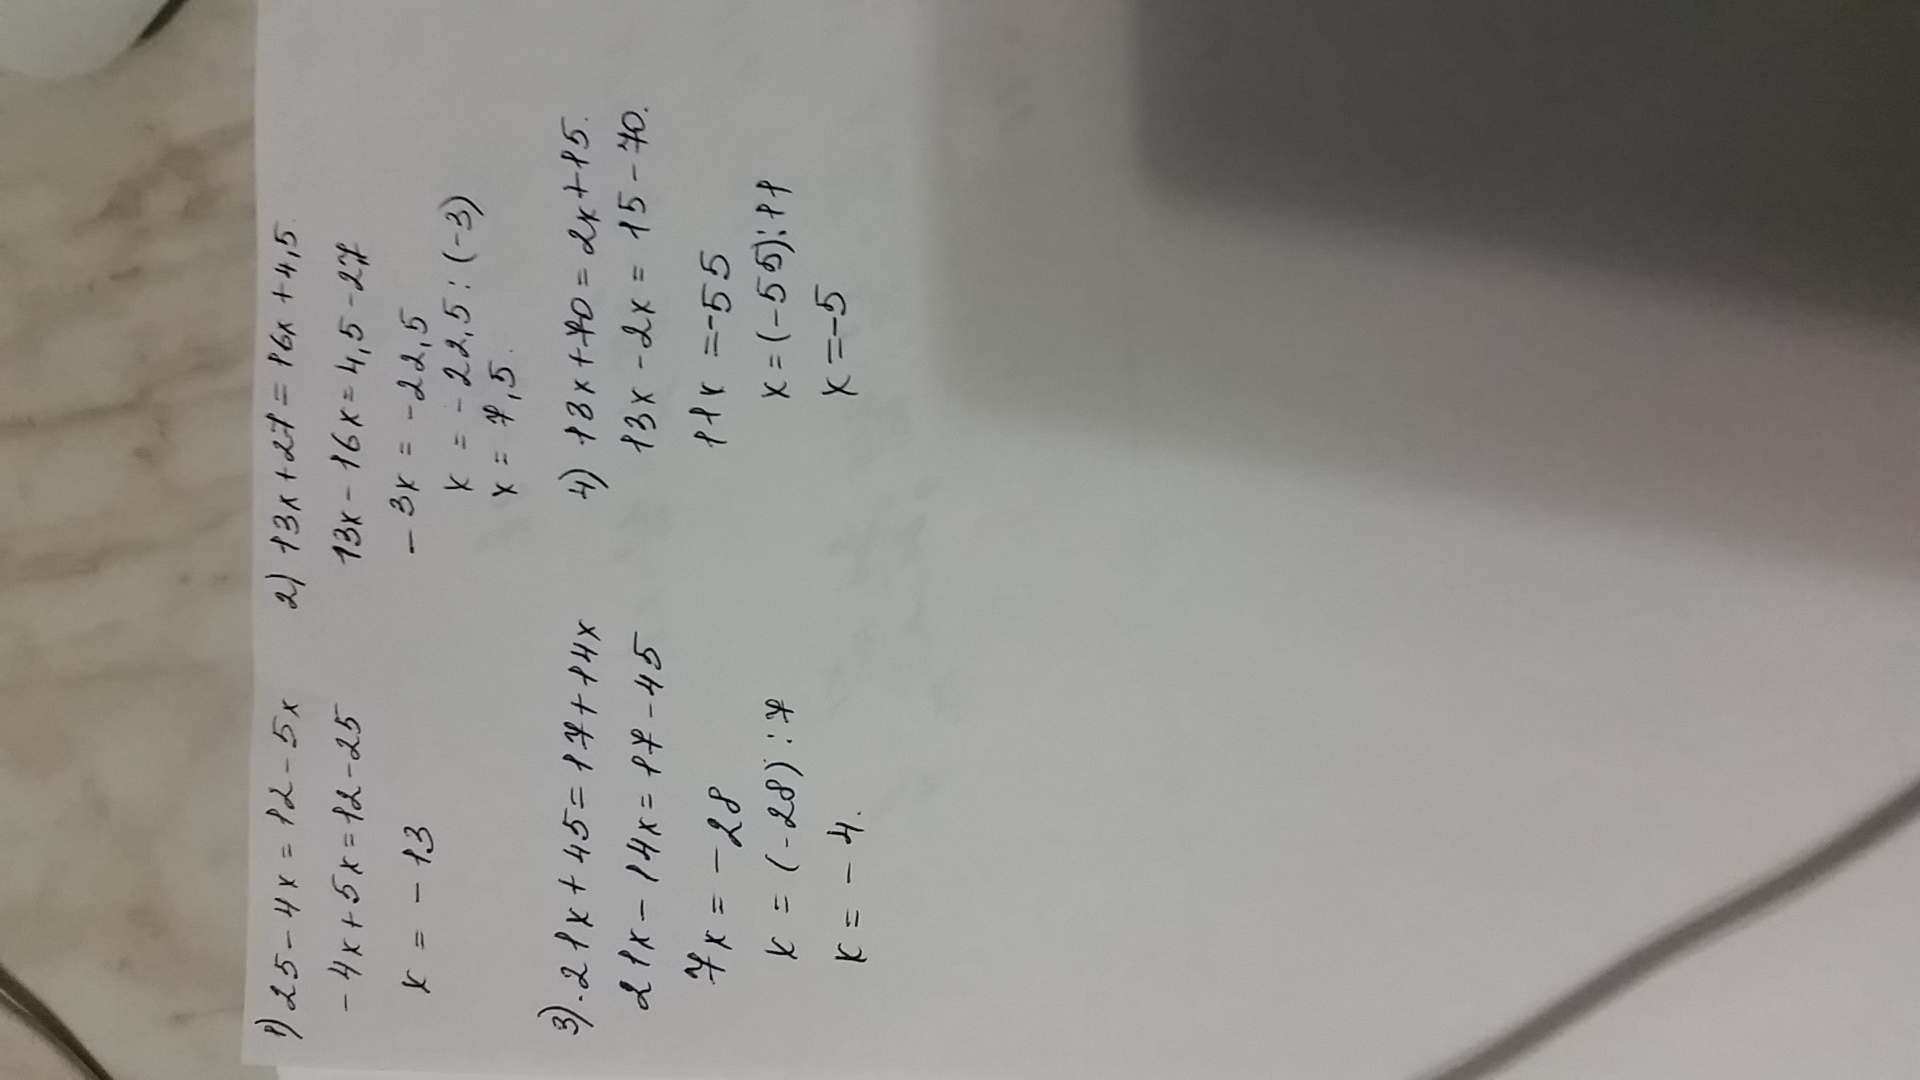 1) 25-4x=12-5x
-4x+5x=12-25
x=-13
2) 13x+27=16x+4,5.
13x-16x=4,5-27
-3x=-22,5
x=-22,5:(-3)
x=7,5.
3).21x+45=17+14x
21x-14x=17-45
7x=-28
x=(-28):7
x=-4.
4) 13x+70=2x+15.
13x-2x=15-70.
11x=-55
x=(-55):11
x=-5